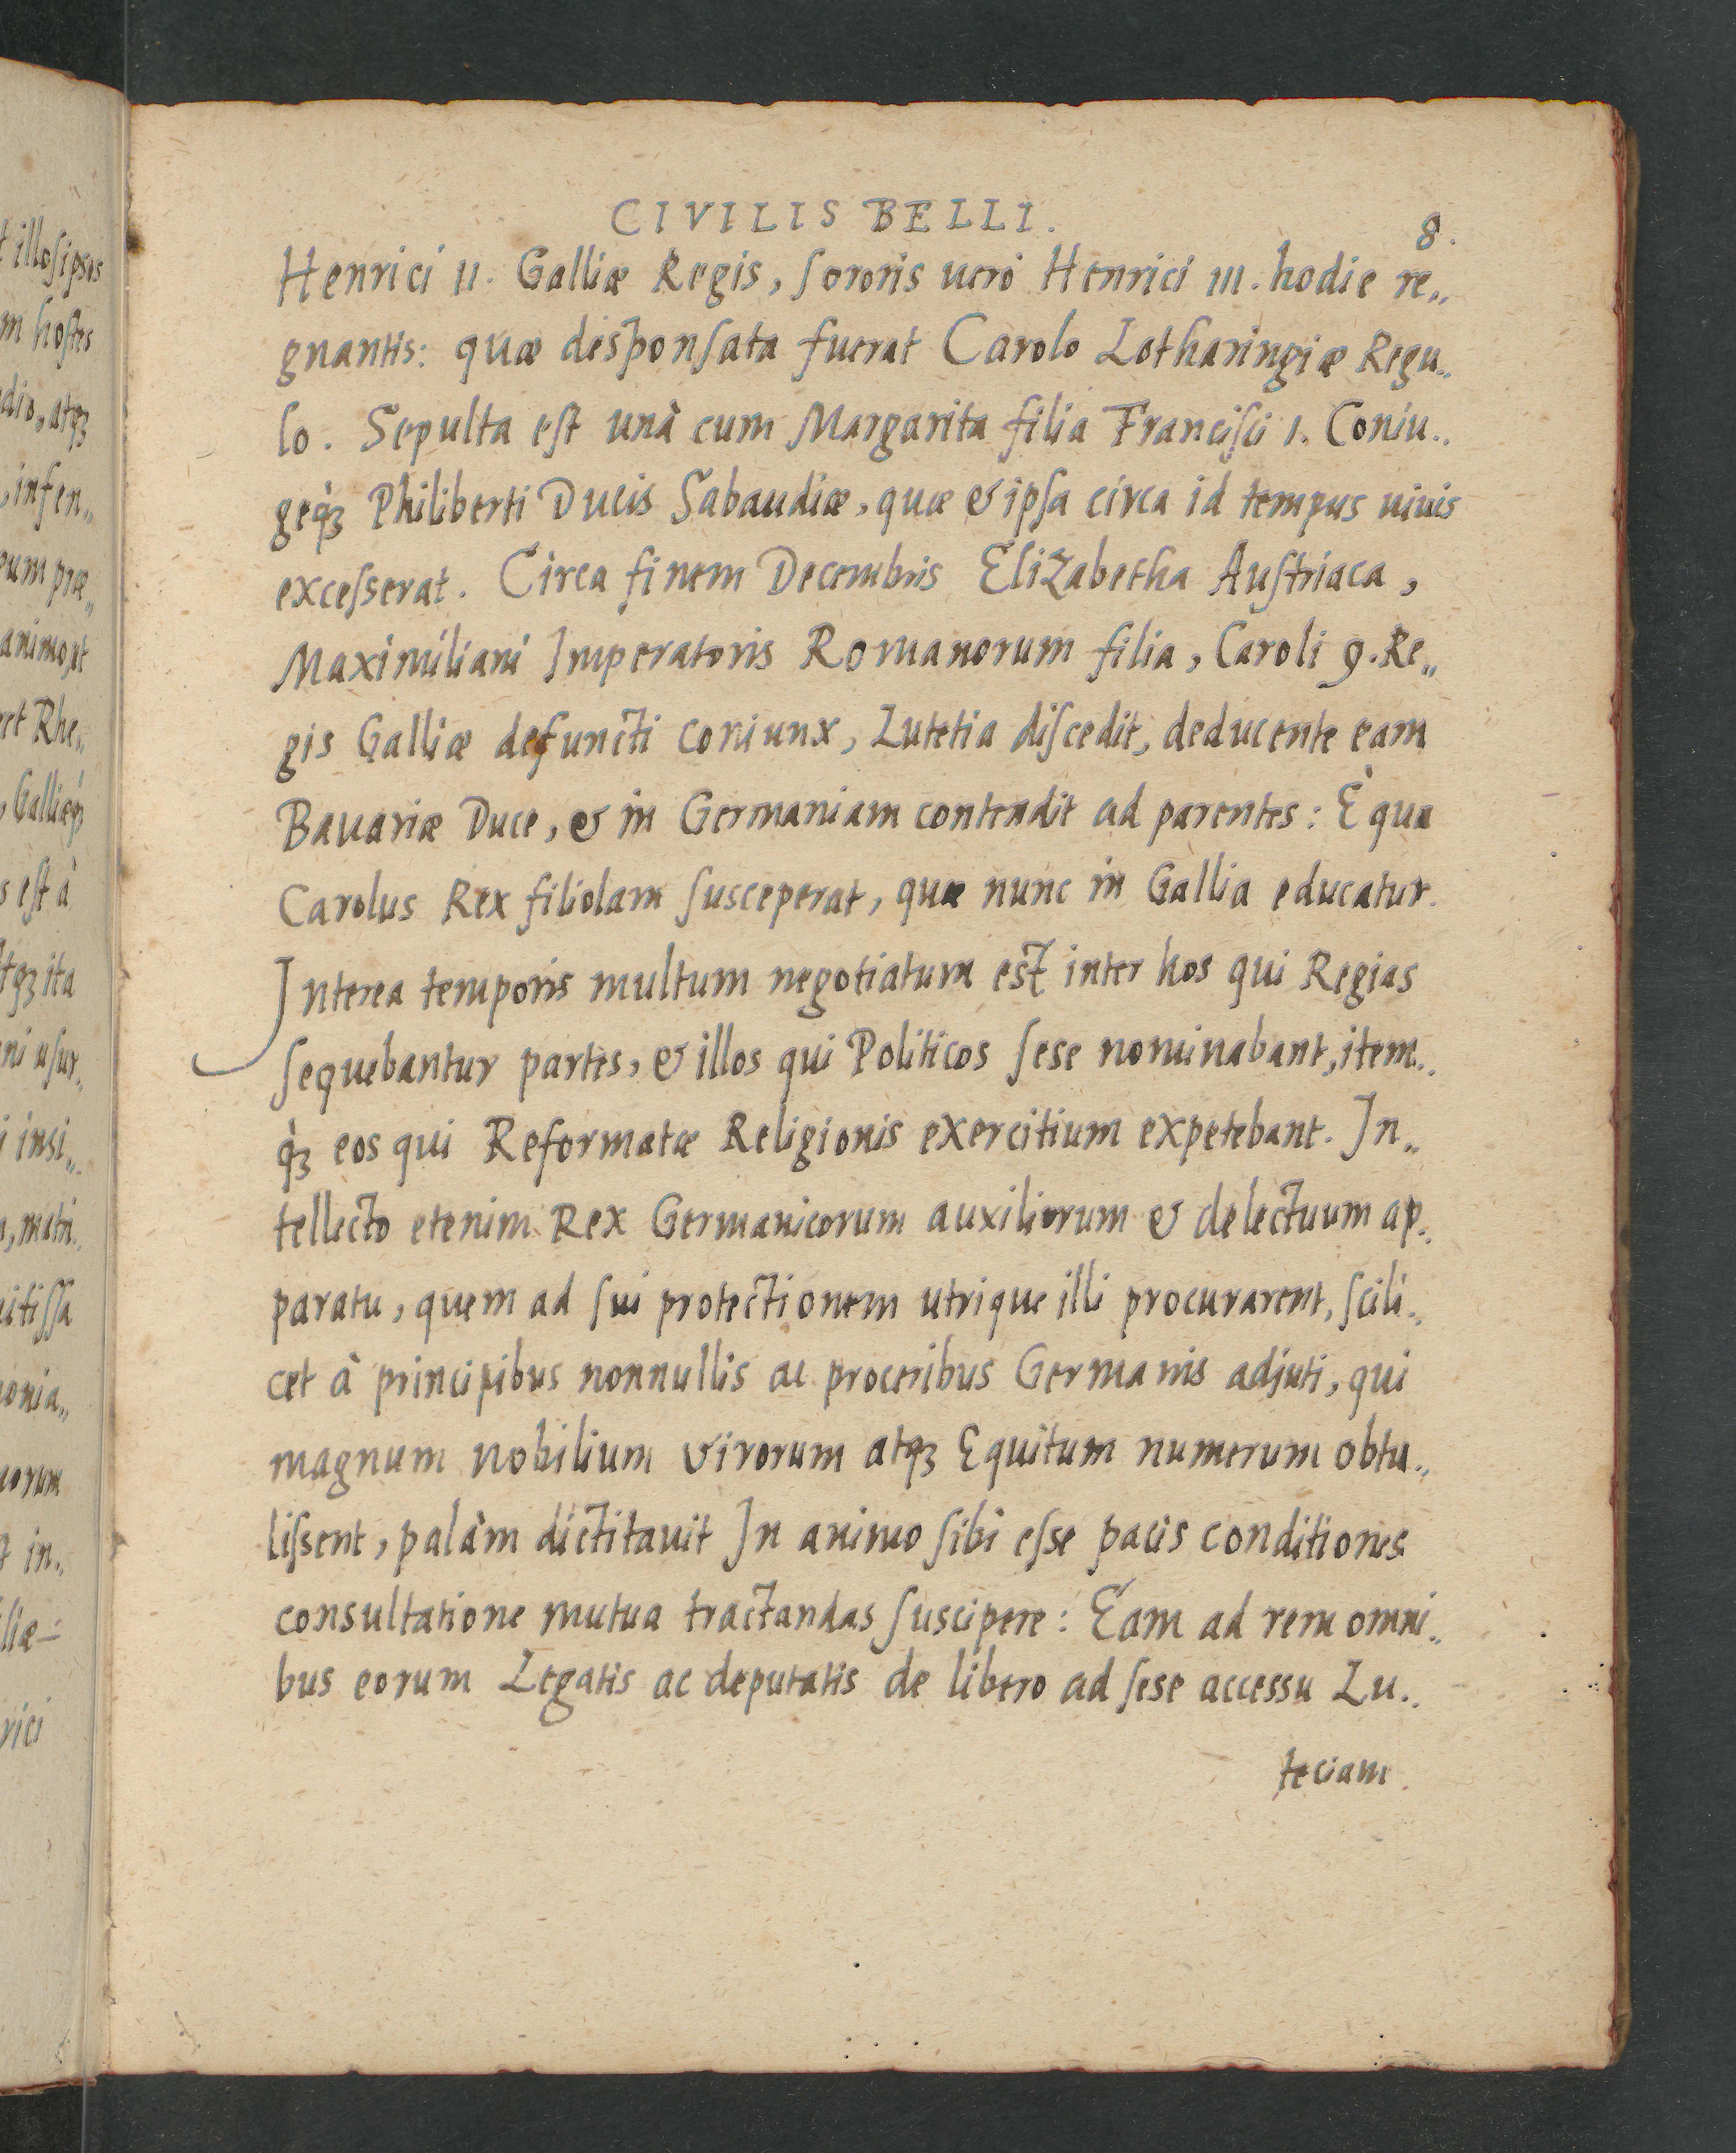 CIVILIS BELLI.
8.
Henrici II. Galliæ Regis, ſororis uerò Henrici III. hodie re„
gnantis: quæ desponſata fuerat Carolo Lotharingiæ Regu„
lo. Sepulta eſt unà cum Margarita filia Franciſci I. Coniu„
geq́ꝫ Philiberti Ducis Sabaudiæ, quæ & ipſa circa id tempus uiuis
exceſserat. Circa finem Decembris Elizabetha Auſtriaca,
Maximiliani Imperatoris Romanorum filia, Caroli 9. Re„
gis Galliæ defuncti coniunx, Lutetia diſcedit, deducente eam
Bauariæ Duce, & in Germaniam contendit ad parentes: È qua
Carolus Rex filiolam ſusceperat, quæ nunc in Gallia educatur.
Interea temporis multum negotiatum est inter hos qui Regias
ſequebantur partes, & illos qui Politicos ſese nominabant, item„
q́ꝫ eos qui Reformatæ Religionis exercitium expetebant. In„
tellecto etenim Rex Germanicorum auxiliorum & delectuum ap„
paratu, quem ad ſui protectionem utrique illi procurarent, ſcili„
cet à principibus nonnullis ac proceribus Germanis adjuti, qui
magnum nobilium virorum atqꝫ Equitum numerum obtu„
liſsent, palàm dictitauit In animo ſibi eſse pacis conditiones
consultatione mutua tractandas ſuscipere: Eam ad rem omni„
bus eorum Legatis ac deputatis de libero ad ſese accessu Lu„
teciam
t illoſipsos
m hoſtes
dio, atqꝫ
, infen„
animo, ut
et Rhe„
s eſt à
tqꝫ ita
ni uſur„
i insi„
onia„
uorum
in„
liæ
rici